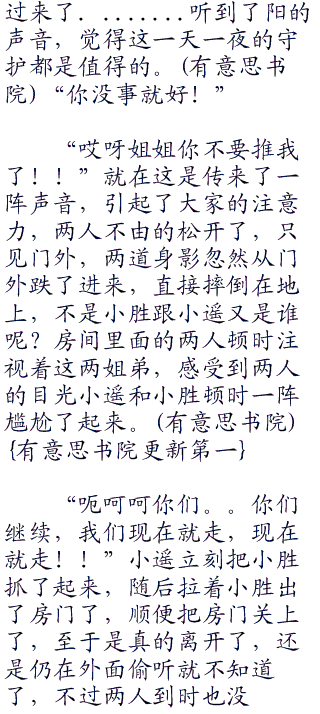 过来了．．．．．．．．听到了阳的
声音，觉得这一天一夜的守
护都是值得的。(有意思书
院)“你没事就好！”
“哎呀姐姐你不要推我
了！！”就在这是传来了一
阵声音，引起了大家的注意
力，两人不由的松开了，只
见门外，两道身影忽然从门
外跌了进来，直接摔倒在地
上，不是小胜跟小遥又是谁
呢？房间里面的两人顿时注
视着这两姐弟，感受到两人
的目光小遥和小胜顿时一阵
尴尬了起来。(有意思书院)
{有意思书院更新第一}
“呃呵呵你们。。你们
继续，我们现在就走，现在
就走！！”小遥立刻把小胜
抓了起来，随后拉着小胜出
了房门了，顺便把房门关上
了，至于是真的离开了，还
是仍在外面偷听就不知道
了，不过两人到时也没